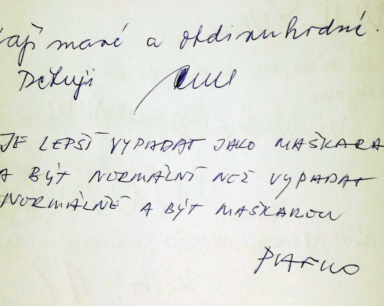 mavé a obdivuhodné.
Děkuji
JE LEPŠÍ VYPADAT JAKO MAŠKARA
A BÝT NORMÁLNÍ NEŽ VYPADAT
NORMÁLNĚ A BÝT MAŠKAROU